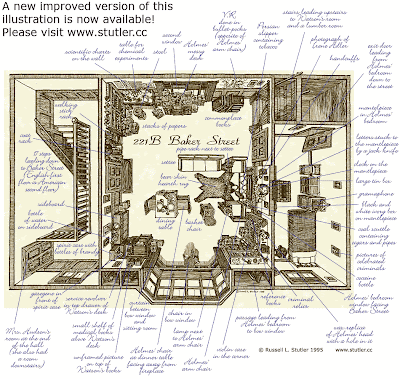 A new improved version of this
illustration is now available!
Please visit www.stutler.cc
V.R.
done in
bullet-pocks
(opposite of
Holmes'
arm chair)
Persian
slipper
containing
tobacco
stairs leading upstairs
to Watson's room
and a lumber room
photograph of
Irene Adler
handcuffs
exit door
leading
from
Holmes'
bedroom
down to the
street
second
window
stool
Holmes'
messy
desk
table for
chemical
experiments
scientific charts
on the wall
walking
stick
rack
coat
rack
stacks of papers
commonplace
books
mantelpiece
in Holmes'
bedroom
221B Baker Street
pipe rack next to settee
settee
bear skin
hearth rug
17 steps
leading
down to
Baker Street
(English first
floor is American
second floor)
letters stuck to
the mantelpiece
by a jack knife
clock on the
mantelpiece
large tin box
gramophone
black and
white ivory box
on mantelpiece
coal scuttle
containing
cigars and pipes
pictures of
celebrated
criminals
cocaine
bottle
sideboard
bottle
of water
on sideboard
dining
table
basket
chair
spirit case with
bottles of brandy
gasogene in
front of
spirit case
service revolver
in top drawer of
Watson's desk
curtain
between
bow window
and
sitting room
chair in
bow window
reference
books
criminal
relics
Holmes' bedroom
window facing
Baker Street
Mrs. Hudson's
room at the end
of the hall
(she also had
a room
downstairs)
small shelf of
medical books
above Watson's
desk
lamp next to
Holmes'
arm chair
passage leading from
Holmes' bedroom
to bow window
wax replica
of Holmes' head
with a hole in it
unframed picture
on top of
Watson's books
Holmes' chair
at dinner table
facing away from
fireplace
Holmes'
arm chair
violin case
in the corner
© Russell L. Stutler 1995 www.stutler.cc